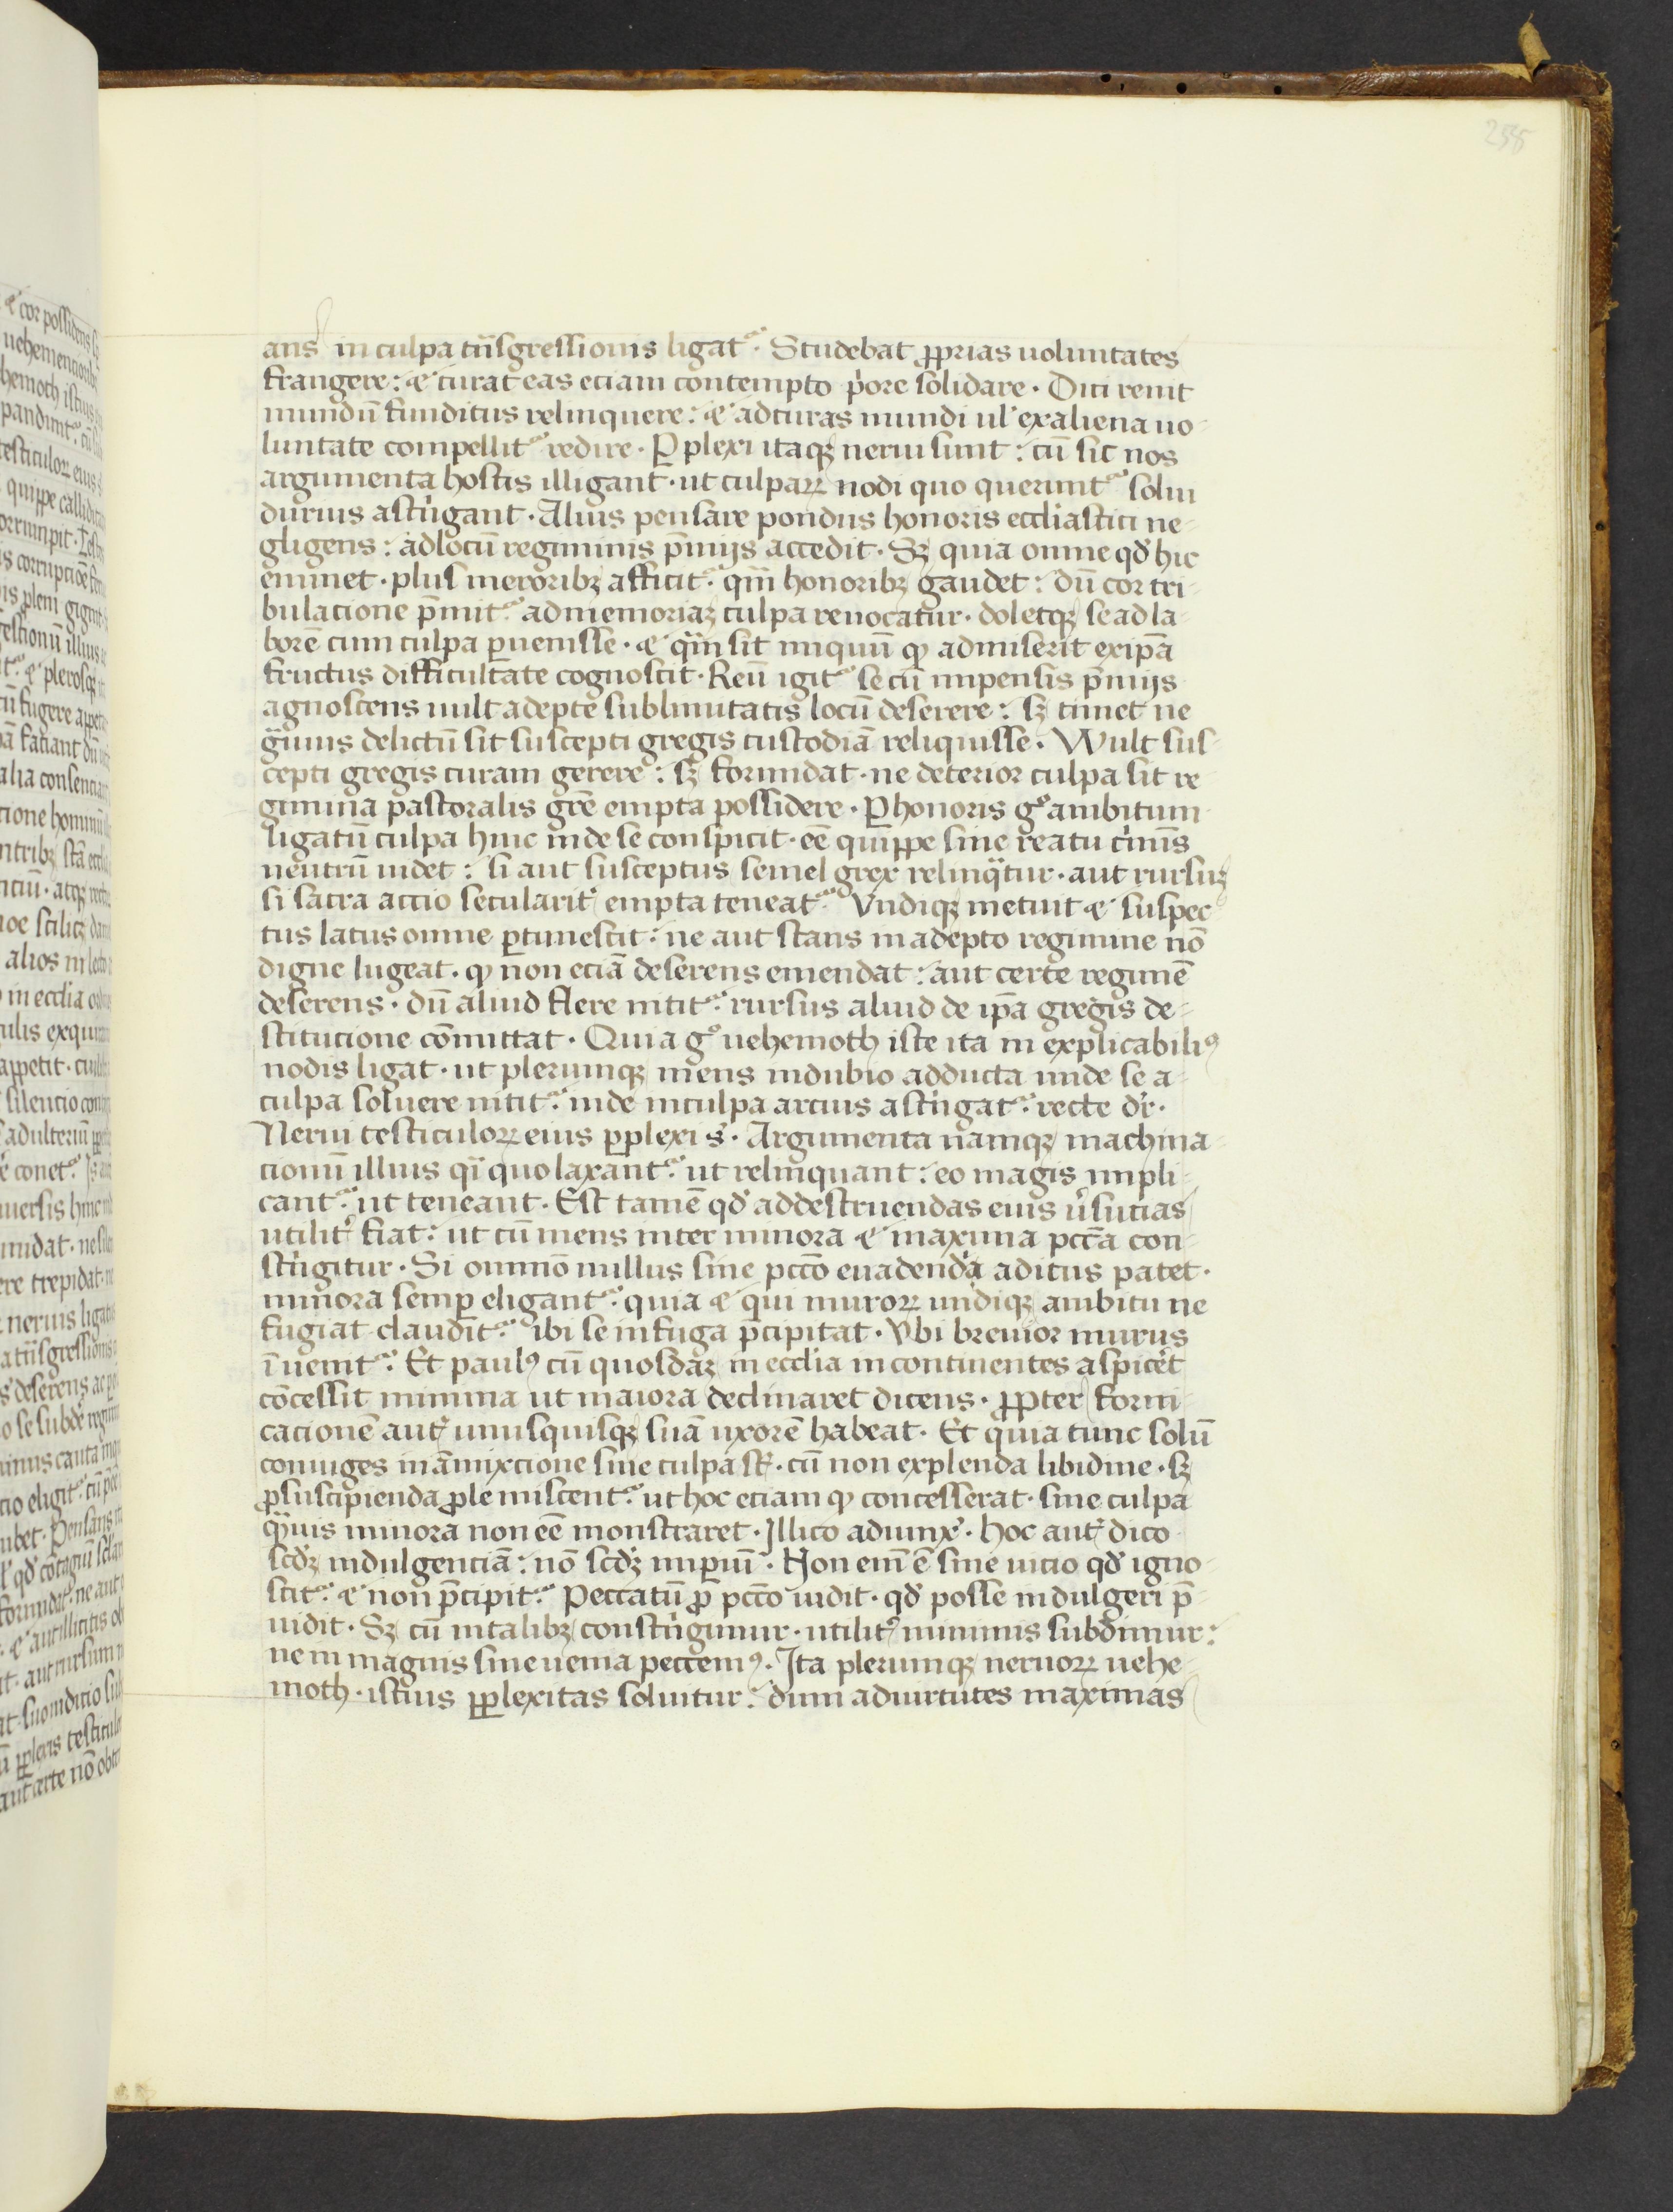 255
ans in culpa tͣnsgressionis ligatᷣ. Studebat ꝓprias uoluntates
frangere: ⁊ curat eas eciam contempto pͥore solidare. Dici renit
mundū funditus relinquere: ⁊ ad curas mundi ul' ex aliena uo-
luntate compellitᷣ redire. Ꝑplexi itaqꝫ nerui sunt: cū sic nos
argumenta hostis illigant. ut culpaꝝ nodi quo queruntᷣ solui
durius astͥngant. Alius pensare pondus honoris eccliastici ne-
gligens: ad locū regiminis p̄mijs accedit. Sꝫ quia omne qd' hic
eminet. plus meroribꝫ afficitᷣ. qͣm honoribꝫ gaudet: dū cor tri-
bulacione p̄mitᷣ. ad memoriaꝫ culpa reuocatur. doletqꝫ se ad la-
borē cum culpa ꝑuenisse. ⁊ qͣm sit iniquū ꝙ admiserit ex ip̄a
fructus difficultate cognoscit. Reū igitᷣ se cū impensis p̄mijs
agnoscens uult adepte sublimitatis locū deserere: sꝫ timet ne
gͣuius delictū sit suscepti gregis custodiā reliquisse. Wult sus-
cepti gregis curam gerere: sꝫ formidat. ne deterior culpa sit re-
gimina pastoralis grē empta possidere. Ꝑ honoris gͦ ambitum
ligatū culpa hinc inde se conspicit. eē quippe sine reatu cͥmīs
neutrū uidet: si aut susceptus semel grex relinqͣtur. aut rursuꝫ
si sacra accio secularitͥ empta teneatᷣ. Vndiqꝫ metuit ⁊ suspec-
tus latus omne ꝑtimescit: ne aut stans in adepto regimine nō
digne lugeat. ꝙ non eciā deserens emendat: aut certe regimē
deserens. dū aliud flere nititᷣ. rursus aliud de ip̄a gregis de-
stitucione cōmittat. Quia gͦ uehemoth iste ita in explicabiliꝰ
nodis ligat. ut plerumqꝫ mens in dubio adducta unde se a
culpa soluere nititᷣ. inde in culpa arcius astͥngatᷣ. recte dr̄.
Nerui testiculoꝝ eius ꝑplexi s̄. Argumenta namqꝫ machina-
cionū illius qͣ quo laxantᷣ. ut relinquant: eo magis impli-
cantᷣ ut teneant. Est tamē qd' ad destruendas eius uͥsucias
utilitͥ fiat: ut cū mens inter minora ⁊ maxima pcc̄a con-
stͥngitur. Si omnīo nullus sine pcc̄o euadendi aditus patet.
minora semꝑ eligantᷣ. quia ⁊ qui muroꝝ undiqꝫ ambitu ne
fugiat clauditᷣ. ibi se in fuga p̄cipitat. Vbi breuior murus
īuenitᷣ. Et paulꝰ cū quosdaꝫ in ecclia incontinentes aspicet
cōcessit minima ut maiora declinaret dicens. ꝓpter forni-
cacionē autͥ unusquisqꝫ suā uxorē habeat. Et quia tunc solū
coniuges in āmixcione sine culpa st̄. cū non explenda libidine. sꝫ
ꝓ suscipienda ꝓle miscentᷣ. ut hoc eciam ꝙ concesserat. sine culpa
qͣuis minora non eē monstraret. Illico adiunx̄. hoc autͥ dico
scd'ꝫ indulgenciā: nō scd'ꝫ imꝑiū. Non enī ē sine uicio qd' igno-
scitᷣ. ⁊ non p̄cipitᷣ. Peccatū ꝓ pcc̄o uidit. qd' posse indulgeri p̄-
uidit. Sꝫ cū in talibꝫ constͥngimur. utilitͥ minimis subdimur:
ne in magnis sine uenia peccemꝰ. Ita plerumqꝫ neruoꝝ uehe-
moth. istius ꝑplexitas soluitur: dum ad uirtutes maximas